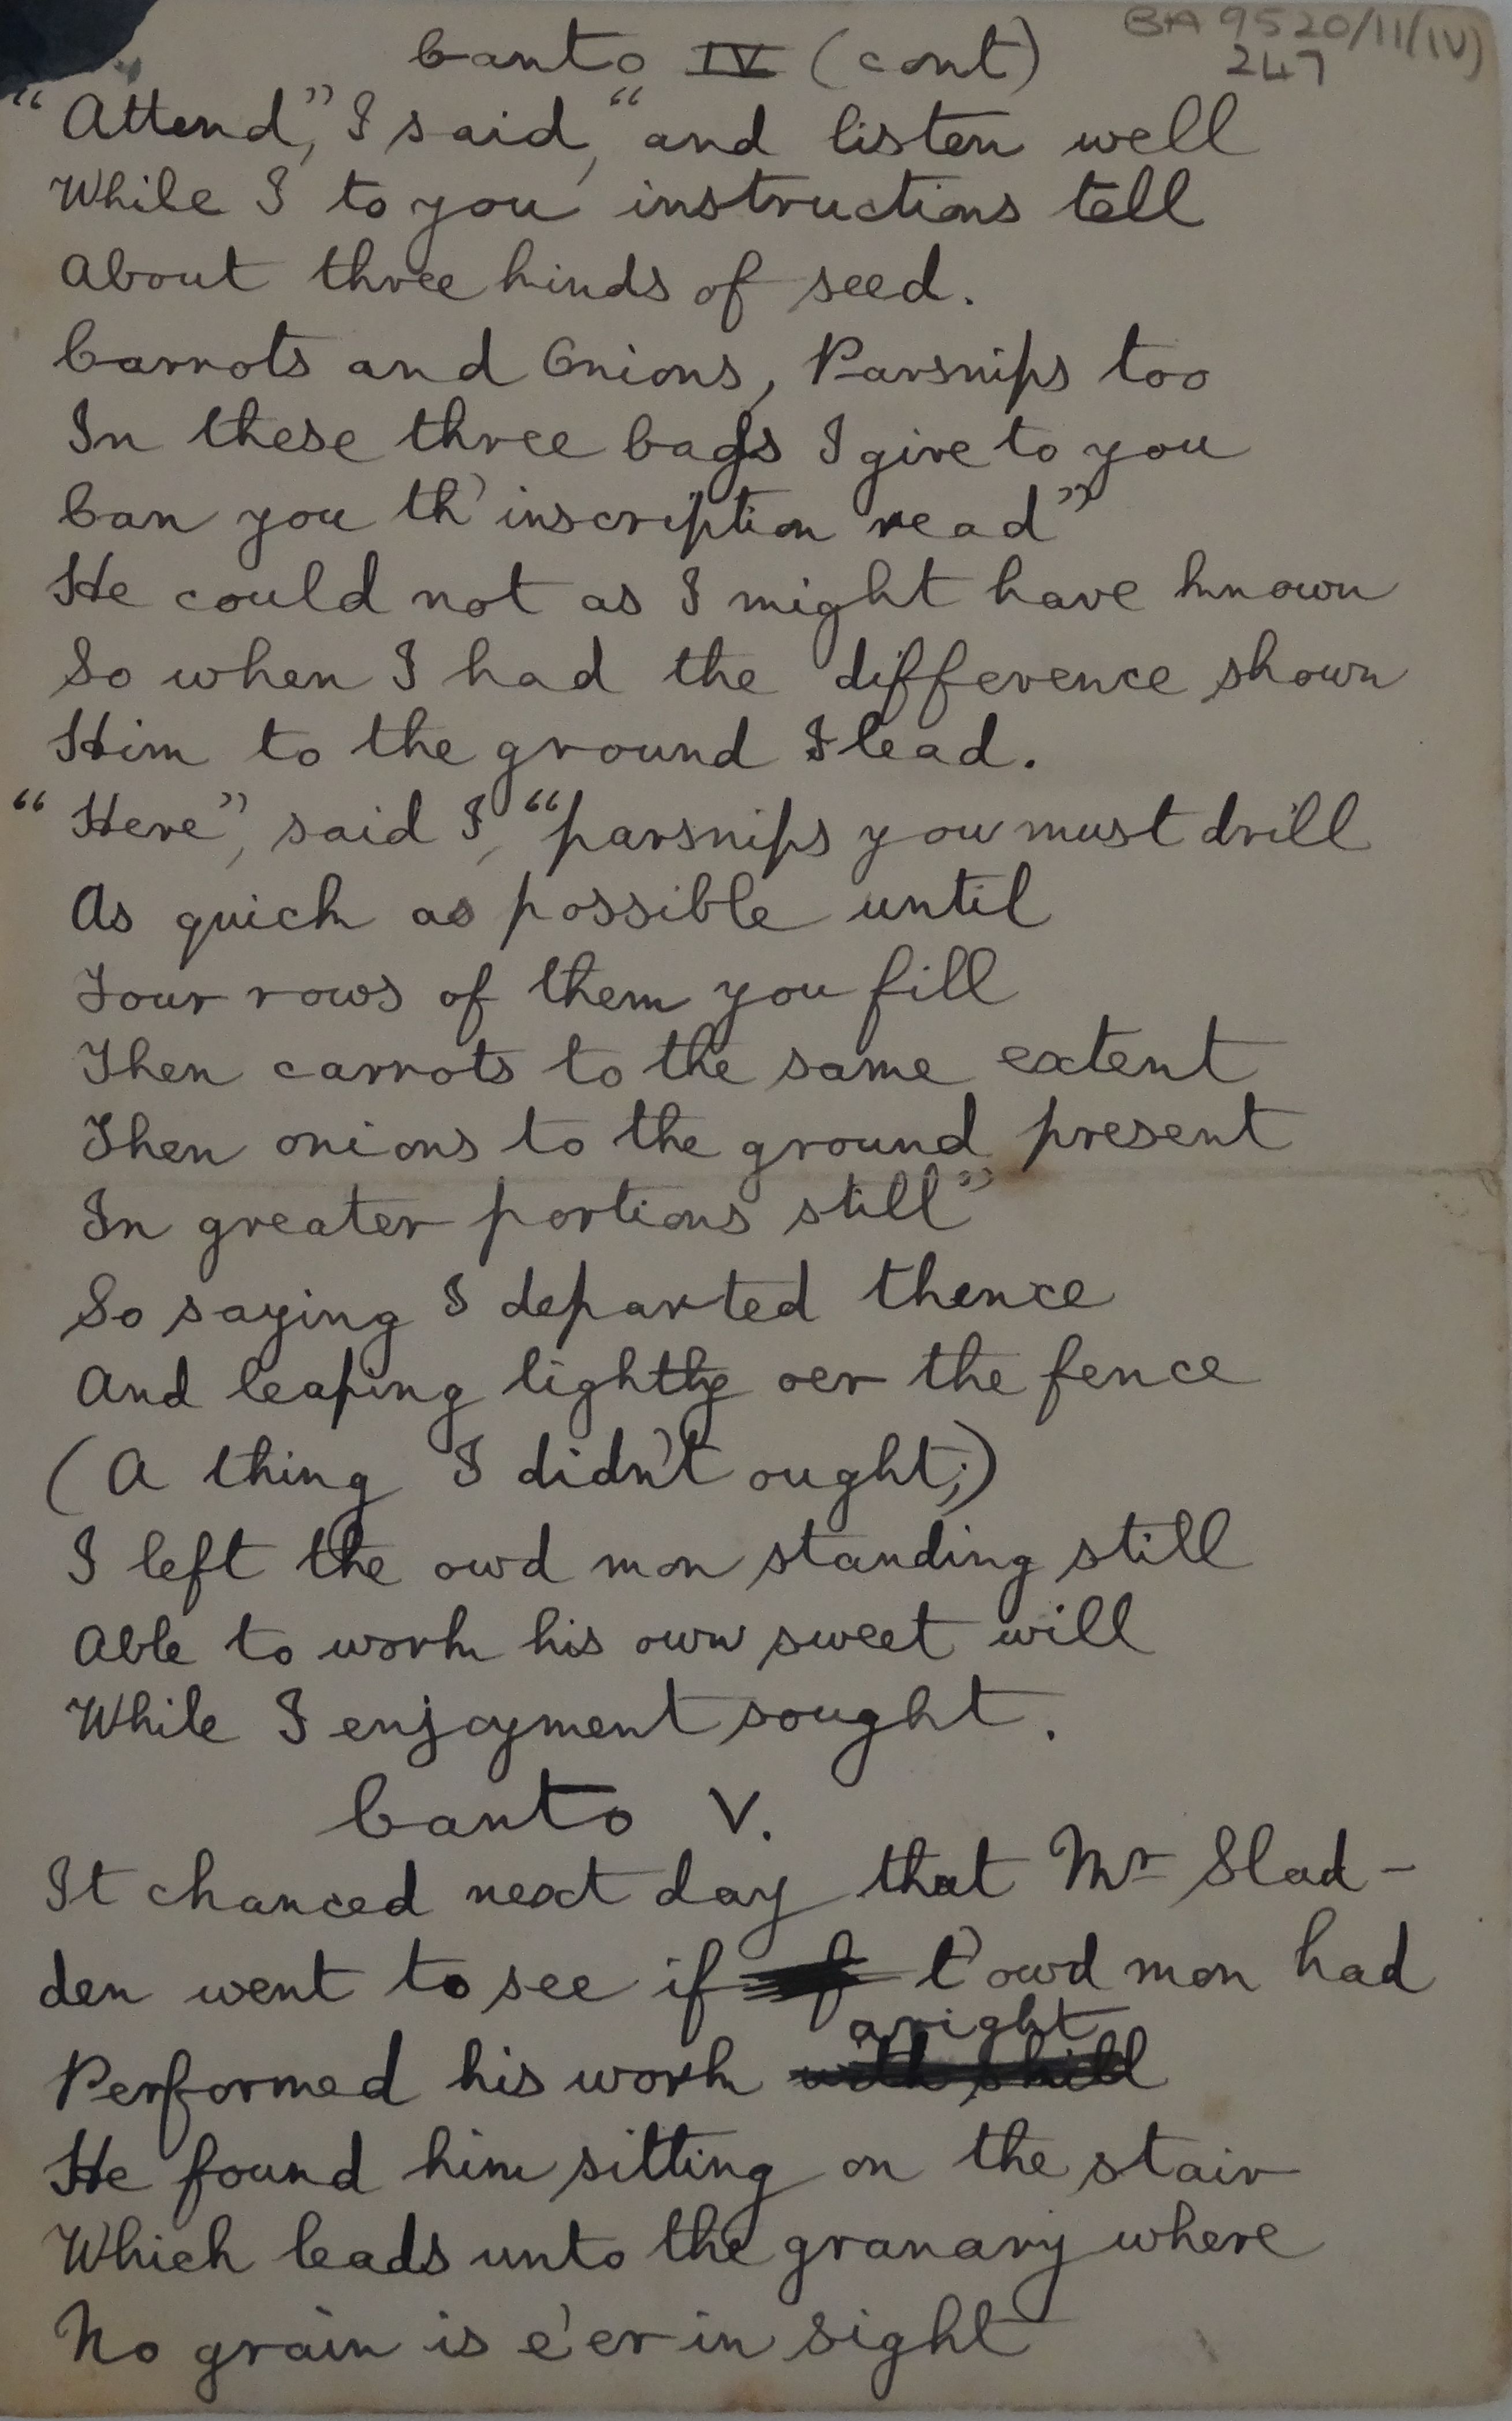 BA 9520/11/(IV)
247
Canto IV (cont)
"Attend," I said, "and listen well
While I to you instructions tell
About three kinds of seed.
Carrots and Onions, Parsnips too
In these three bags I give to you
Can you th' inscription read"
He could not as I might have known
So when I had the difference shown
Him to the ground I lead.
"Here", said I, "parsnips you must drill
As quick as possible until
Four rows of them you fill
Then carrots to the same extent
Then onions to the ground present
In greater portions still"
So saying I departed thence
And leaping lightly oer the fence
(A thing I didn't ought;)
I left the owd mon standing still
Able to work his own sweet will
While I enjoyment sought.
Canto V.
It chanced next day that Mr Slad-
den went to see if t'owd mon had
aright
Performed his work with skill
He found him sitting on the stair
Which leads unto the granary where
No grain is e'er in sight